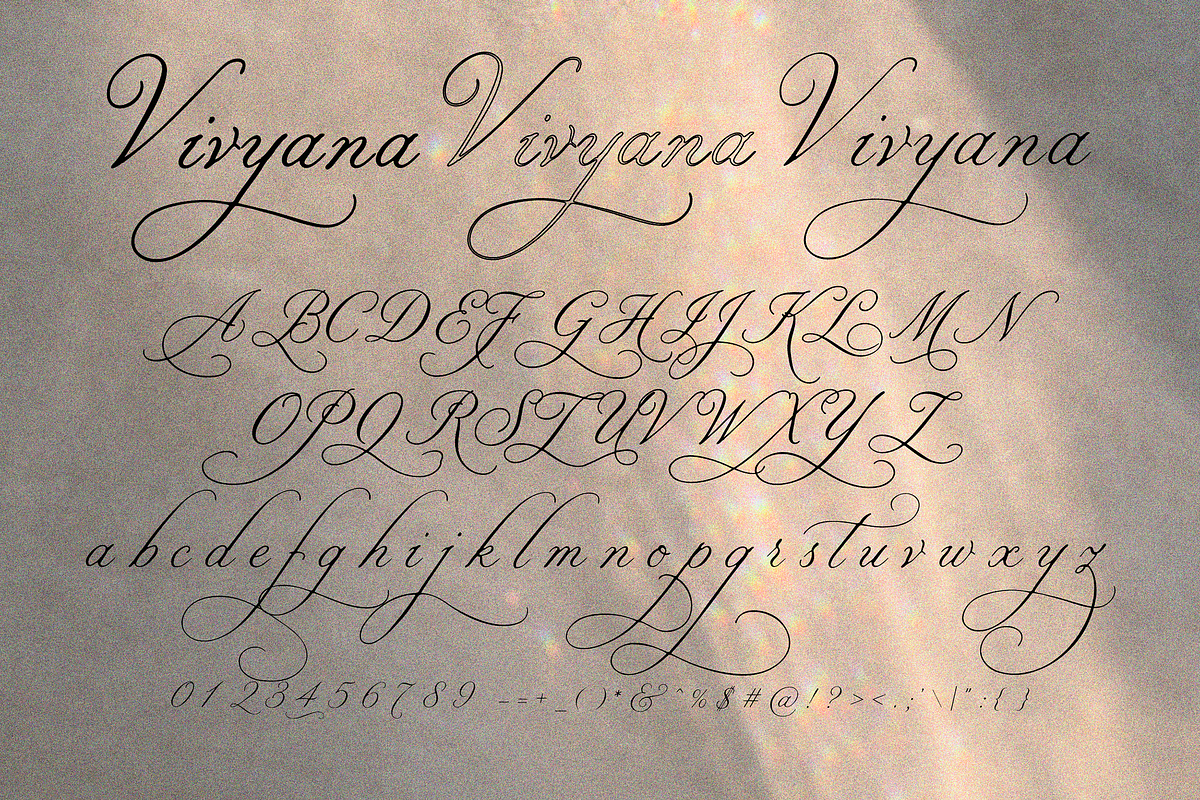 Vivyana Vivyana Vivyana
A B C D E F G H I J K L M N
O P Q R S T U V W X Y Z
a b c d e f g h i j k l m n o p q r s t u v w x y z
0 1 2 3 4 5 6 7 8 9 - = + _ ( ) * & ^ % $ # @ ! ? > < . ; ' \ | " : { }